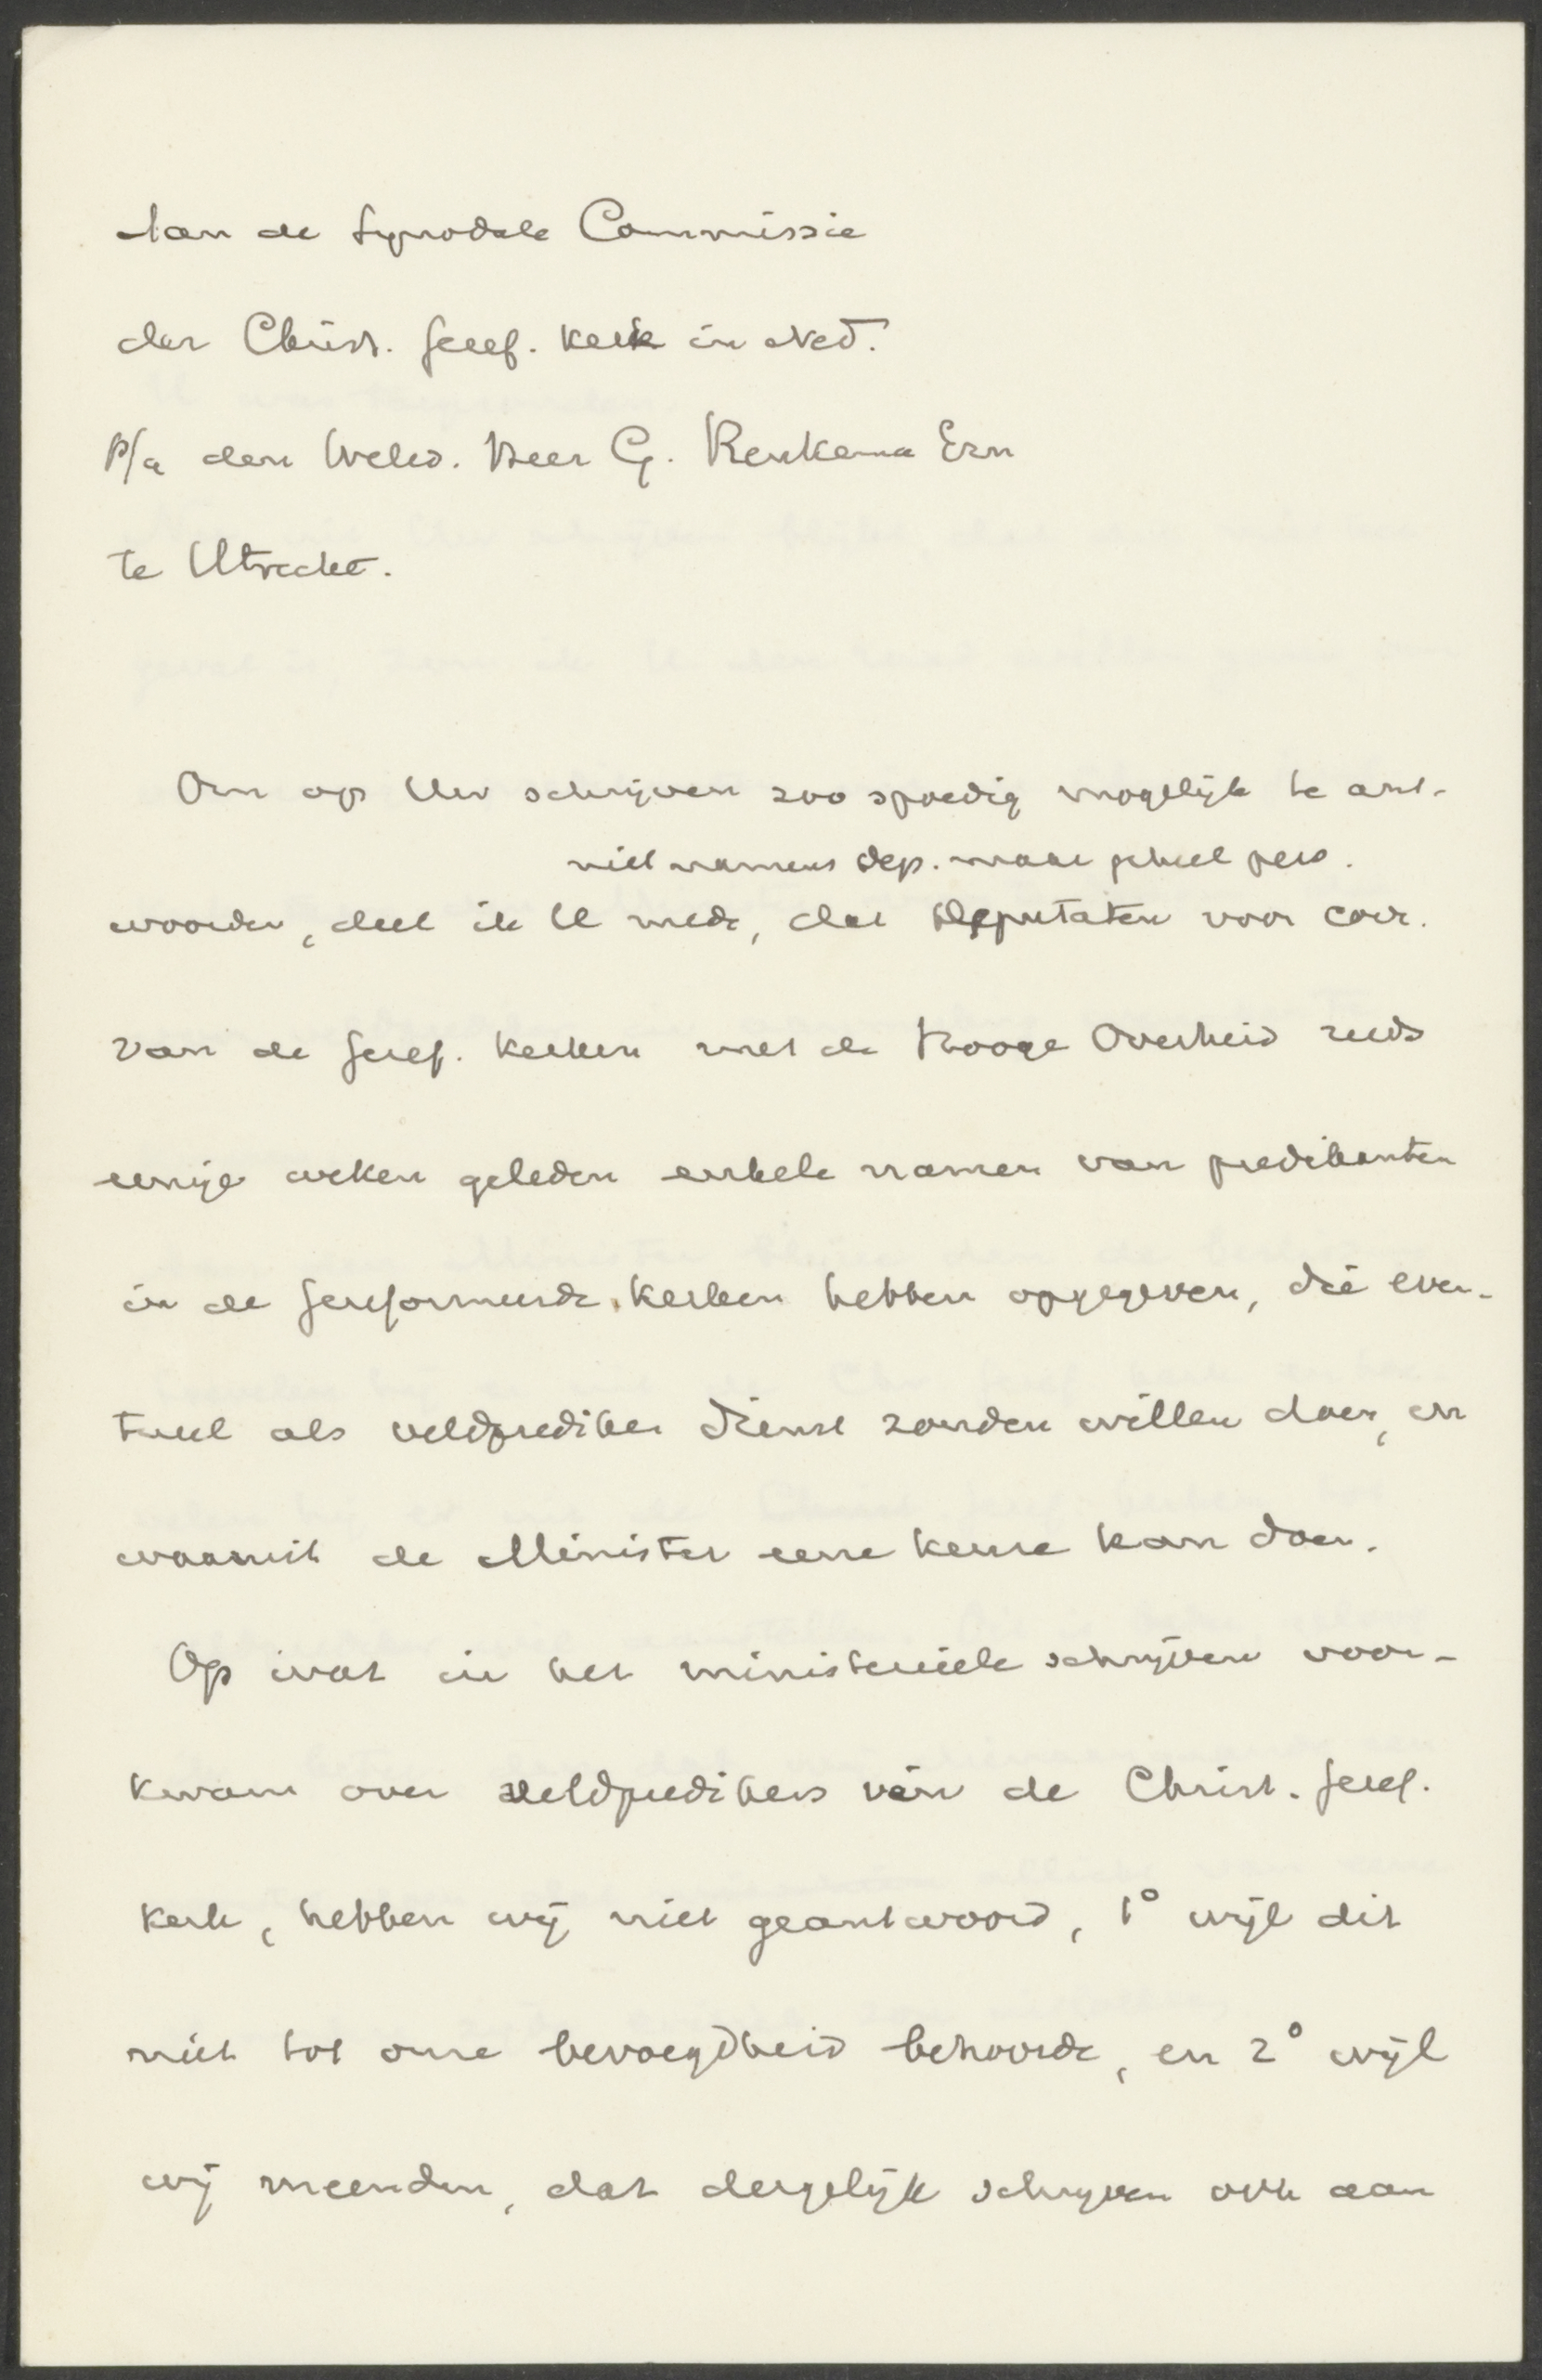 Aan de Synodale Commissie
der Christ. Geref. Kerk in Ned.
p/a den Weled. Heer G. Renkema Ezn
te Utrecht.
Om op Uw schrijven zoo spoedig mogelijk te ant-
niet namens dep. maar geheel pers.
woorden, deel ik U mede, dat Deputaten voor corr.
van de Geref. Kerken met de Hooge Overheid reeds
eenige weken geleden enkele namen van predikanten
in de Gereformeerde Kerken hebben opgegeven, die even-
tueel als veldprediker dienst zouden willen doen, en
waaruit de Minister eene keuze kan doen.
Op wat in het ministerieele schrijven voor-
kwam over veldpredikers van de Christ. Geref.
Kerk, hebben wij niet geantwoord, 1° wijl dit
niet tot onze bevoegdheid behoorde, en 2° wijl
wij meenden, dat dergelijk schrijven ook aan